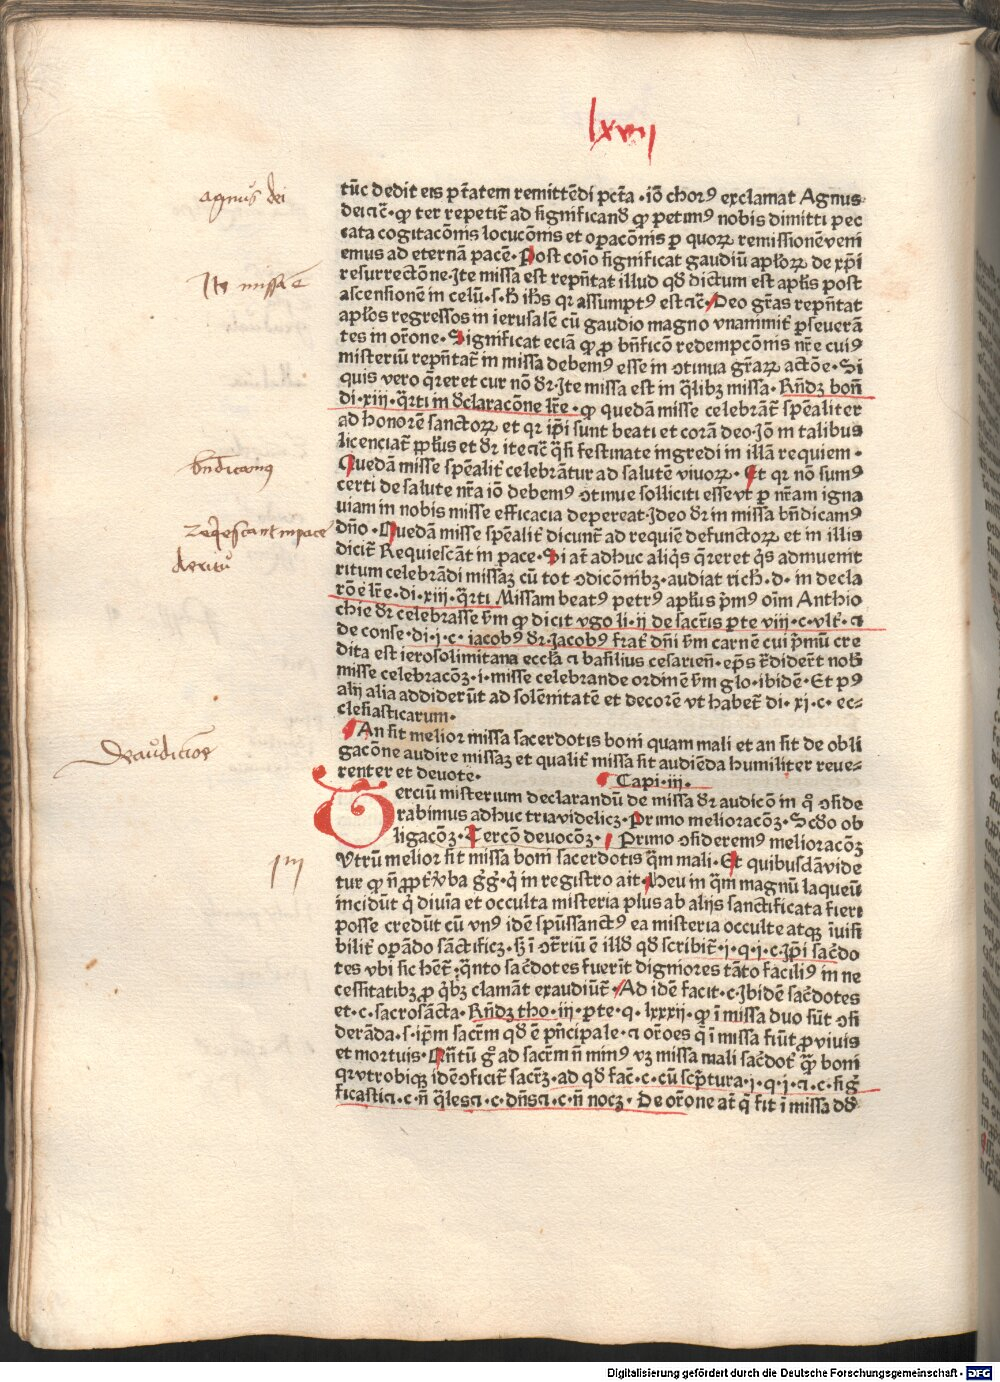 lxvij
tūc dedit eis p̄tatem remittēdi pctā · iō chorꝰ exclamat Agnus
dei ⁊cͣ · qͥ ter repetit̄ ad significandū qꝫ petimꝰ nobis dimitti pec
cata cogitacōnis locucōnis et opacōnis ꝑ quoꝝ remissionē veni
emus ad eternā pacē · Post coīo significat gaudiū aplōꝝ de xp̄i
resurrectōne · Ite missa est repn̄tat illud qd̄ dictum est aplīs post
ascensionē in celū · s · hͥ ih̄s qͥ assumptꝰ est ⁊cͣ · Deo gr̄as repn̄tat
aplōs regressos in ierusalē cū gaudio magno vnanimit̄ ꝑseuerā
tes in orōne · Significat eciā qꝫ ꝓ bn̄ficō redempcōnis nr̄e cuiꝰ
misteriū repn̄tat̄ in missa debemꝰ esse in ꝯtinua gr̄aꝝ actōe · Si
quis vero q̄reret cur nō dr̄ · Ite missa est in q̄libꝫ missa · Rn̄dꝫ bon̄
di · xiii · q̄rti in declaracōne lr̄e · qꝫ quedā misse celebrāt̄ spēaliter
ad honorē sanctoꝝ et qꝛ ip̄i sunt beati et corā deo · Iō in talibus
licenciat̄ pp̄lus et dr̄ ite ⁊cͣ q̄si festinate ingredi in illā requiem ·
Quedā misse spēalit̄ celebrātur ad salutē viuoꝝ · Et qꝛ nō sumꝰ
certi de salute nr̄a iō debemꝰ ꝯtinue solliciti esse vt ꝑ nr̄am igna
uiam in nobis misse efficacia depereat · Ideo dr̄ in missa bn̄dicamꝰ
dn̄o · Quedā misse spēalit̄ dicunt̄ ad requiē defunctoꝝ et in illis
dicit̄ Requiescāt in pace · Si at̄ adhuc aliq̄s q̄reret q̄s adinuenit
ritum celebrādi missaꝫ cū tot ꝯdicōnibꝫ · audiat rich · d · in decla
rōe lr̄e · di · xiii · q̄rti Missam beatꝰ petrꝰ aplūs p̄mꝰ oīm Anthio
chie dr̄ celebrasse vm̄ qꝫ dicit vgo li · ii de sacr̄is ꝑte viij · c · vlt̄ · ⁊
de conse · di · j · c · iacobꝰ dr̄ · Jacobꝰ frat̄ dn̄i vm̄ carnē cui p̄mū cre
dita est ierosolimitana eccl̄a ⁊ basilius cesarien̄ · ep̄s t̄dider̄t nob̄
misse celebracōꝫ · i · misse celebrande ordinē vm̄ glo · ibidē · Et pꝰ
alij alia addiderūt ad solēnitatē et decorē vt habet̄ di · xj · c · ec-
clesiasticarum ·
An sit melior missa sacerdotis boni quam mali et an sit de obli
gacōne audire missaꝫ et qualit̄ missa sit audiēda humiliter reue-
renter et deuote · Capi · iii ·
Terciū misterium declarandū de missa dr̄ audicōm in qͦ ꝯside
rabimus adhuc tria videlicꝫ · Primo melioracōꝫ · Scd̄o ob
ligacōꝫ · Tercō deuocōꝫ · Primo ꝯsideremꝰ melioracōꝫ
Vtrū melior sit missa boni sacerdotis q̄m mali · Et quibusdā vide
tur qꝫ n̄ ꝓpt̄ v̄ba gͤgͤ · qͥ in registro ait · Heu in q̄m magnū laqueū
incidūt qͥ diuīa et occulta misteria plus ab alijs sanctificata fieri
posse credūt cū vnꝰ idē spūssanctꝰ ea misteria occulte atqꝫ īuisi
bilit̄ oꝑādo sāctificꝫ · sꝫ ī ꝯtrͥiū ē illd̄ qd̄ scribit̄ · j · q · i · c · Ip̄i sac̄do
tes vbi sic hēt̄ · qͣnto sac̄dotes fuerīt digniores tāto faciliꝰ in ne
cessitatibꝫ ꝓ qͥbꝫ clamāt exaudiūt̄ · Ad idē facit · c · Ibidē sac̄dotes
et · c · sacrosācta · Rn̄dꝫ tho · iii · ꝑte · q · lxxxij · qꝫ ī missa duo sūt ꝯsi
derāda · s · ip̄m sacrm̄ qd̄ ē pͥncipale · ⁊ orōes q̄ ī missa fiūt ꝓ viuis
et mortuis · Qn̄tū gͦ ad sacrm̄ n̄ minꝰ vꝫ missa mali sac̄dot̄ q̄ꝫ boni
qꝛ vtrobiqꝫ idē ꝯficit̄ sacrꝫ · ad qd̄ fac̄ · c · cū scp̄tura · j · q · i · ⁊ · c · sig̓
ficasti ⁊ · c · n̄ q̄les ⁊ · c · dn̄s ⁊ · c · n̄ nocꝫ · De orōne at̄ q̄ fit ī missa dd̄
agnus dei
Ite missa ē
bn̄dicamꝰ
reqͥescant in pace
de ritu
De audicione
iij